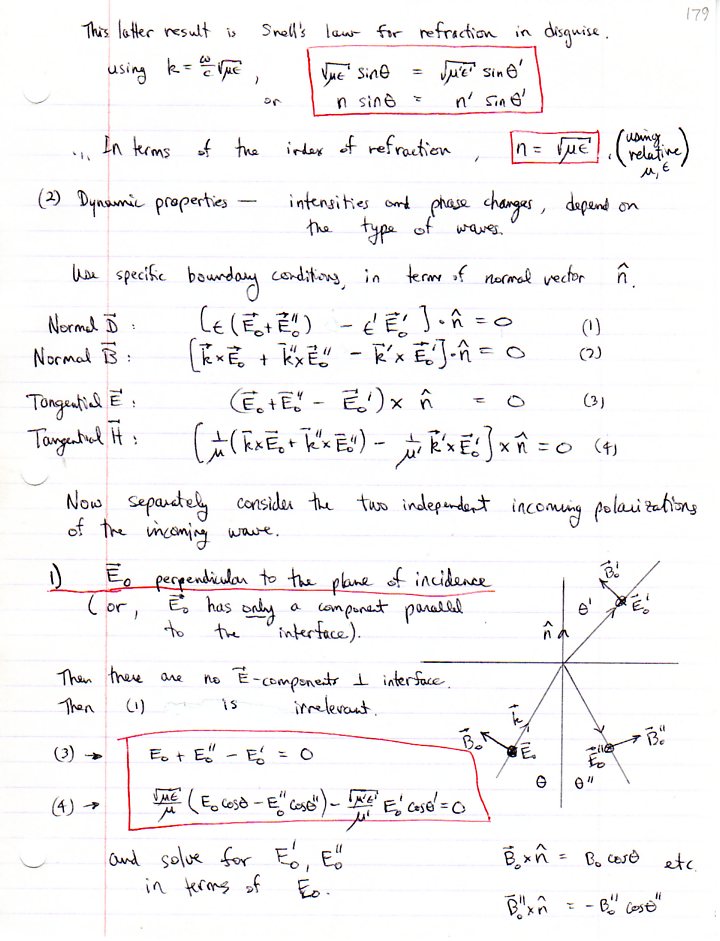 179
This latter result is Snell's law for refraction in disguise.
using k = ω/c √με ,
√με sinθ = √μ'ε' sinθ'
or n sinθ = n' sinθ'
... In terms of the index of refraction, n = √με . (using relative μ, ε)
(2) Dynamic properties — intensities and phase changes, depend on
the type of waves.
Use specific boundary conditions, in terms of normal vector n̂.
Normal D⃗ : [ε(E⃗₀+E⃗₀'') - ε'E⃗₀']·n̂ = 0 (1)
Normal B⃗ : [k⃗×E⃗₀ + k⃗''×E⃗₀'' - k⃗'×E⃗₀']·n̂ = 0 (2)
Tangential E⃗ : (E⃗₀+E⃗₀'' - E⃗₀')× n̂ = 0 (3)
Tangential H⃗ : [1/μ(k⃗×E⃗₀ + k⃗''×E⃗₀'') - 1/μ' k⃗'×E⃗₀']×n̂ = 0 (4)
Now separately consider the two independent incoming polarizations
of the incoming wave.
1) E⃗₀ perpendicular to the plane of incidence
(or, E⃗₀ has only a component parallel
to the interface).
Then there are no E⃗-components ⊥ interface.
Then (1) is irrelevant.
(3) → E₀ + E₀'' - E₀' = 0
(4) → √με/μ (E₀cosθ - E₀''cosθ'') - √μ'ε'/μ' E₀'cosθ' = 0
and solve for E₀', E₀''
in terms of E₀.
B⃗₀'
θ'
E⃗₀'
n̂
k⃗
B⃗₀
E⃗₀
E⃗₀''
B⃗₀''
θ
θ''
B⃗₀×n̂ = B₀ cosθ etc.
B⃗₀''×n̂ = -B₀'' cosθ''